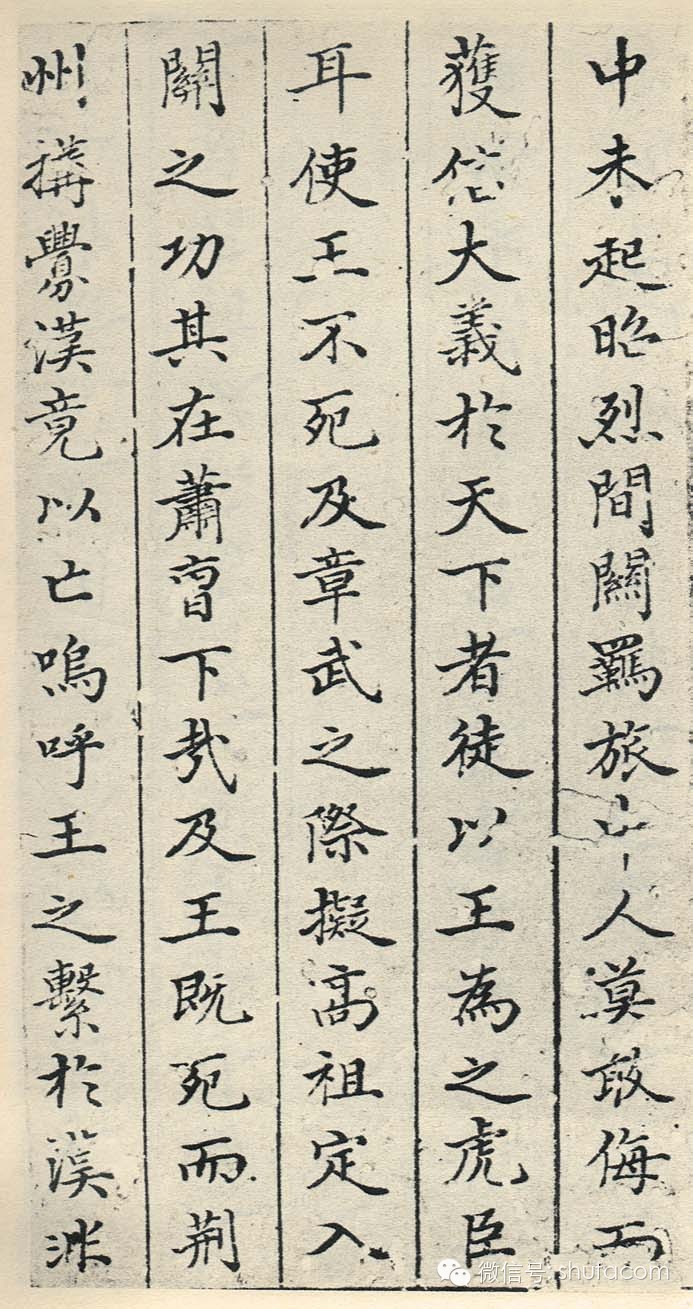 中未起昭烈間關羇旅中人莫敢侮而
獲伸大義於天下者徒以王為之虎臣
耳使王不死及章武之際擬高祖定入
關之功其在蕭曹下哉及王既死而荆
州搆釁漢竟以亡嗚呼王之繫於漢
微信号: shufacom